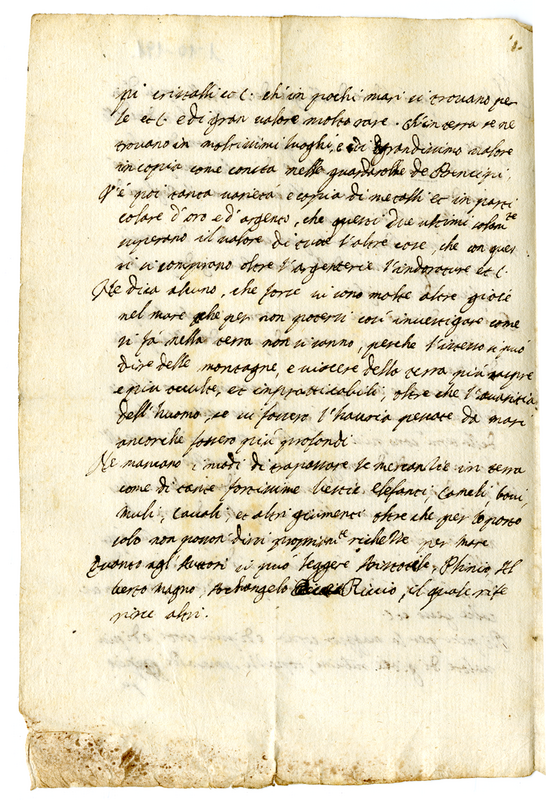 pi cristalli et c. ch'in pochi mari si trovano per
le et c. e di gran valore molto rare. Ch'in terra se ne
trovano in moltissimi luoghi, e di grandissimo valore
in copia come consta nelle guardarobbe de Principi.
V'é poi tanta varietà e copia di metalli et in parti
colare d'oro e d'argento, che questi due ultimi solam.te
superano il valore di tutte l'altre cose, che con ques
ti si comprano oltre l'argenterie l'indorature et c.
Ne dica alcuno, che forse vi sono molte altre gioie
nel mare che per non potersi così investigare come
si fà nella terra non si sanno, perche l'istesso si può
dire delle montagne, e viscere della terra più aspre
e più occulte, et impratticabili, oltre che l'avaritia
dell'huomo se vi fossero l'havria pescate da mari
ancorche fossero più profondi.
Ne mancano i modi di trapassare le mercantie in terra
come di tante fortissime bestie elefanti, Cameli, bovi,
muli, Cavalli, et altri giumenti oltre che per le poste
solo non posson dirsi propriam.te richezze per mare
Quanto agli Autori si può leggere Aristotele, Plinio, Al
berto magno, Archangelo Riccio, il quale rife
risce altri.